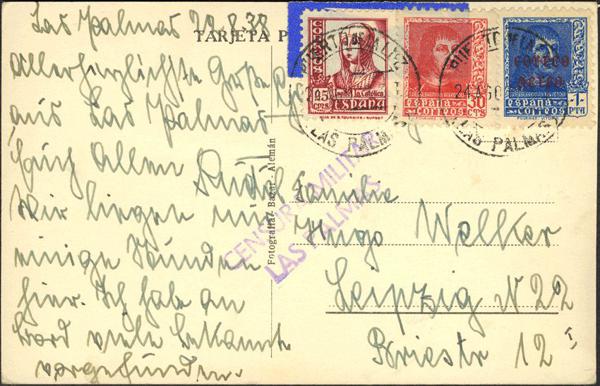 Las Palmas 20.8.38
TARJETA P
Allerherzlichste Grüße
aus Las Palmas
Euch Allen
Wir liegen nur
einige Stunden
hier. Ich habe an
Bord viele Bekannte
vorgefunden.
Fotografía Bazar-Alemán
CENSURA MILITAR
LAS PALMAS
Familie
Hugo Welker
Leipzig N 22
Briestr 12 I
25 CTS
Isabel la Católica
ESPAÑA
30 CTS
ESPAÑA
CORREOS
correo
aéreo
ESPAÑA
CORREOS
1 PTA
PUERTO DE LA LUZ
LAS PALMAS
PUERTO DE LA LUZ
LAS PALMAS